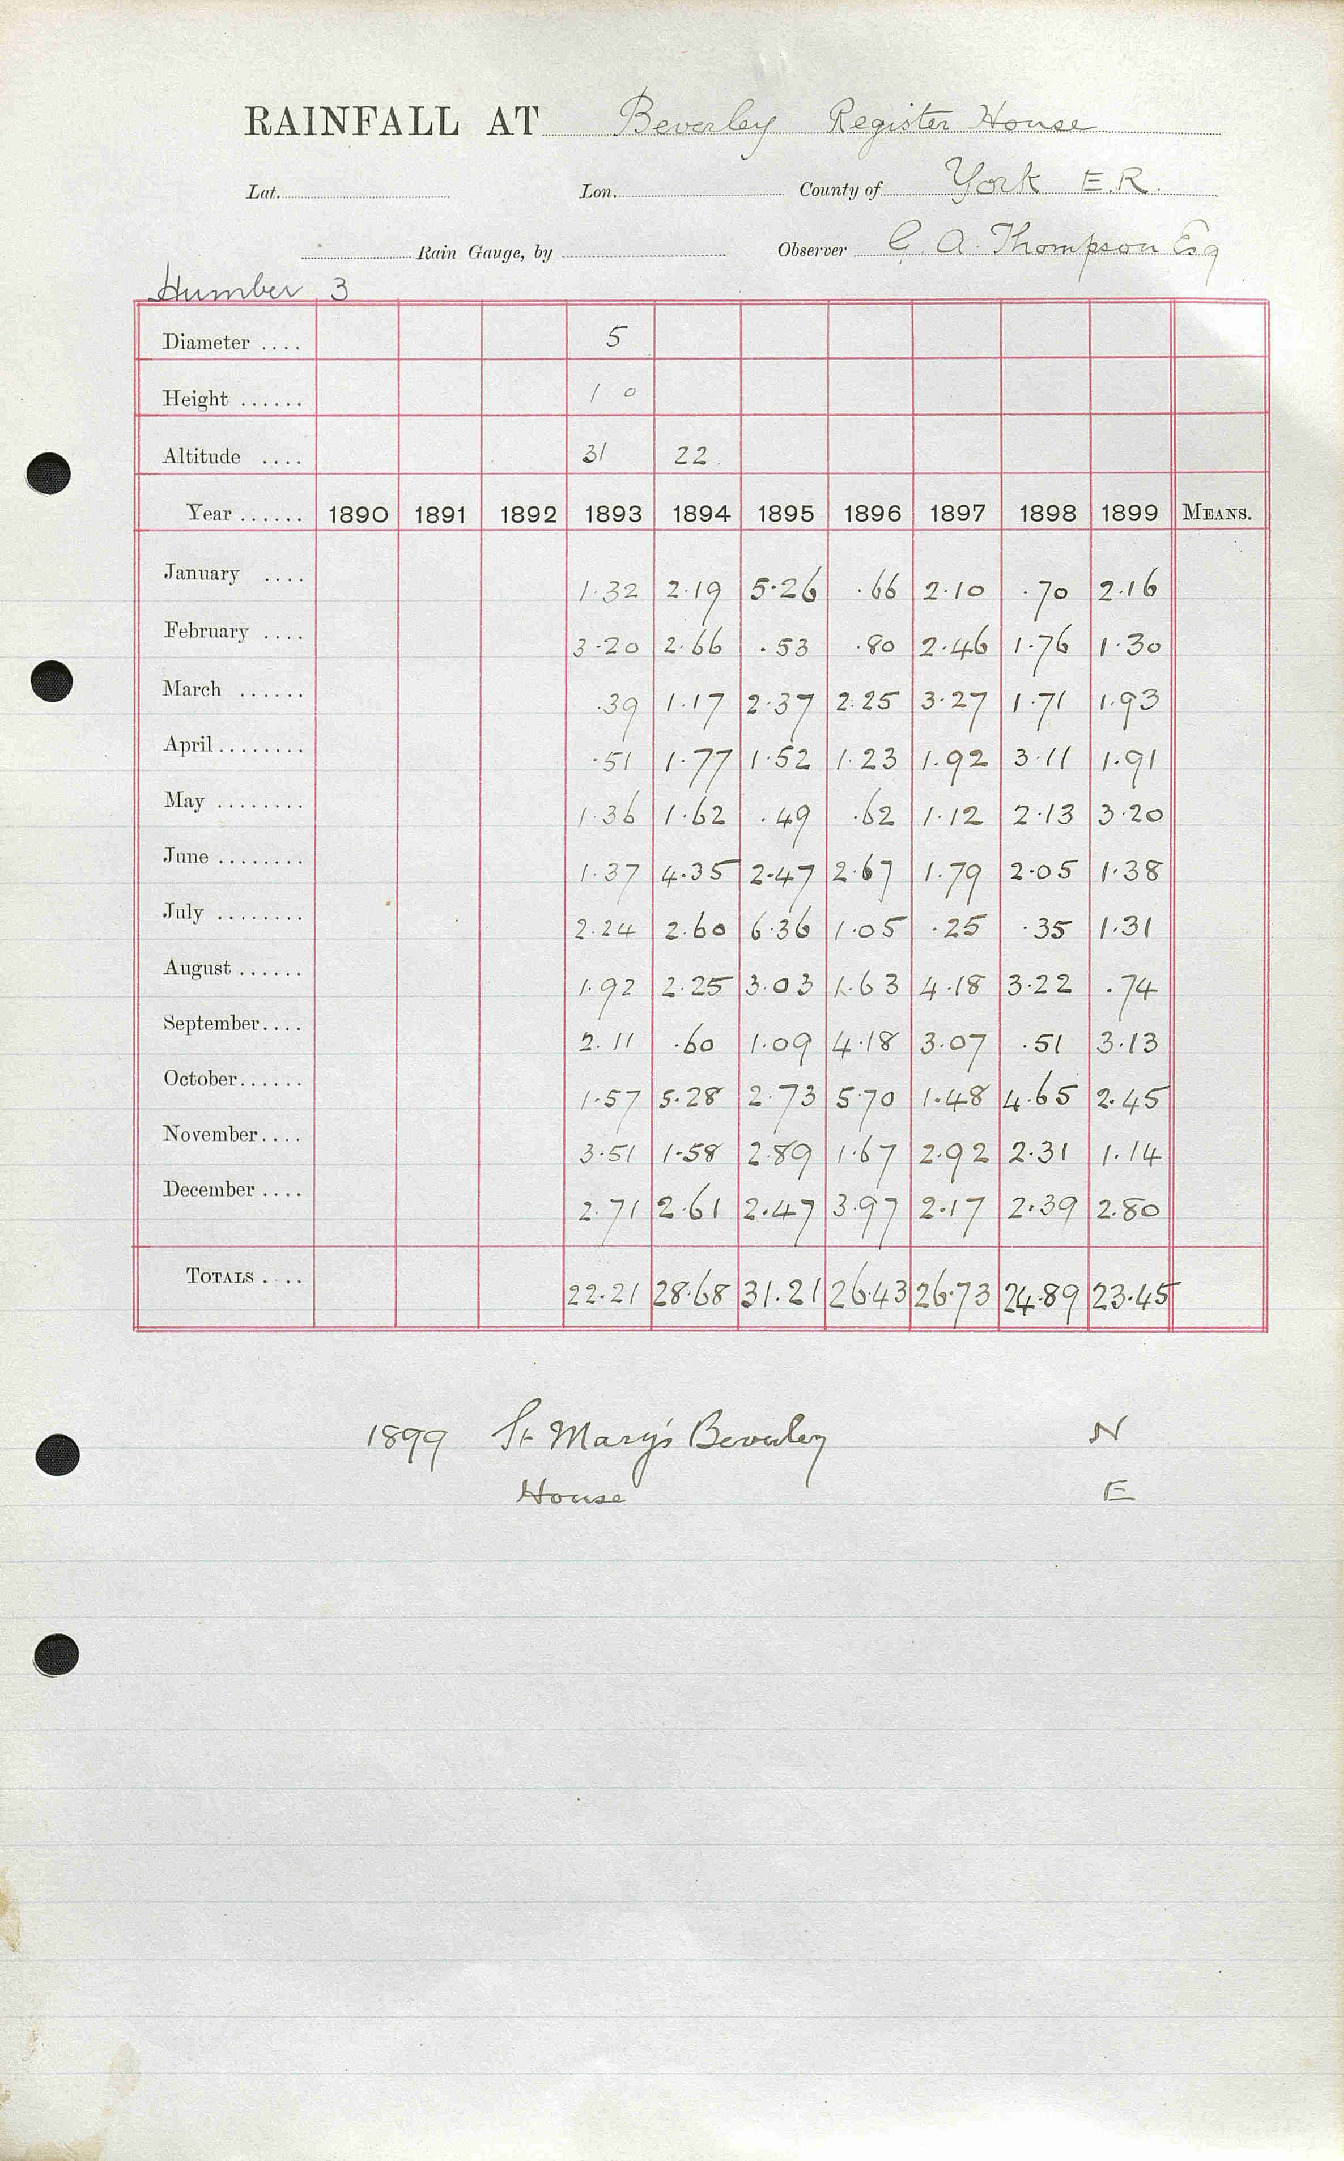 RAINFALL AT Beverley Register House
Lat. Lon. County of York E.R.
Rain Gauge, by Observer G. A. Thompson Esq
Humber 3
Diameter .... 5
Height ...... 1 0
Altitude .... 31 22
Year ...... 1890 1891 1892 1893 1894 1895 1896 1897 1898 1899 MEANS.
January .... 1.32 2.19 5.26 .66 2.10 .70 2.16
February .... 3.20 2.66 .53 .80 2.46 1.76 1.30
March ...... .39 1.17 2.37 2.25 3.27 1.71 1.93
April ........ .51 1.77 1.52 1.23 1.92 3.11 1.91
May ........ 1.36 1.62 .49 .62 1.12 2.13 3.20
June ........ 1.37 4.35 2.47 2.67 1.79 2.05 1.38
July ........ 2.24 2.60 6.36 1.05 .25 .35 1.31
August ...... 1.92 2.25 3.03 1.63 4.18 3.22 .74
September.... 2.11 .60 1.09 4.18 3.07 .51 3.13
October...... 1.57 5.28 2.73 5.70 1.48 4.65 2.45
November.... 3.51 1.58 2.89 1.67 2.92 2.31 1.14
December .... 2.71 2.61 2.47 3.97 2.17 2.39 2.80
TOTALS .... 22.21 28.68 31.21 26.43 26.73 24.89 23.45
1899 St Mary's Beverley N
House E